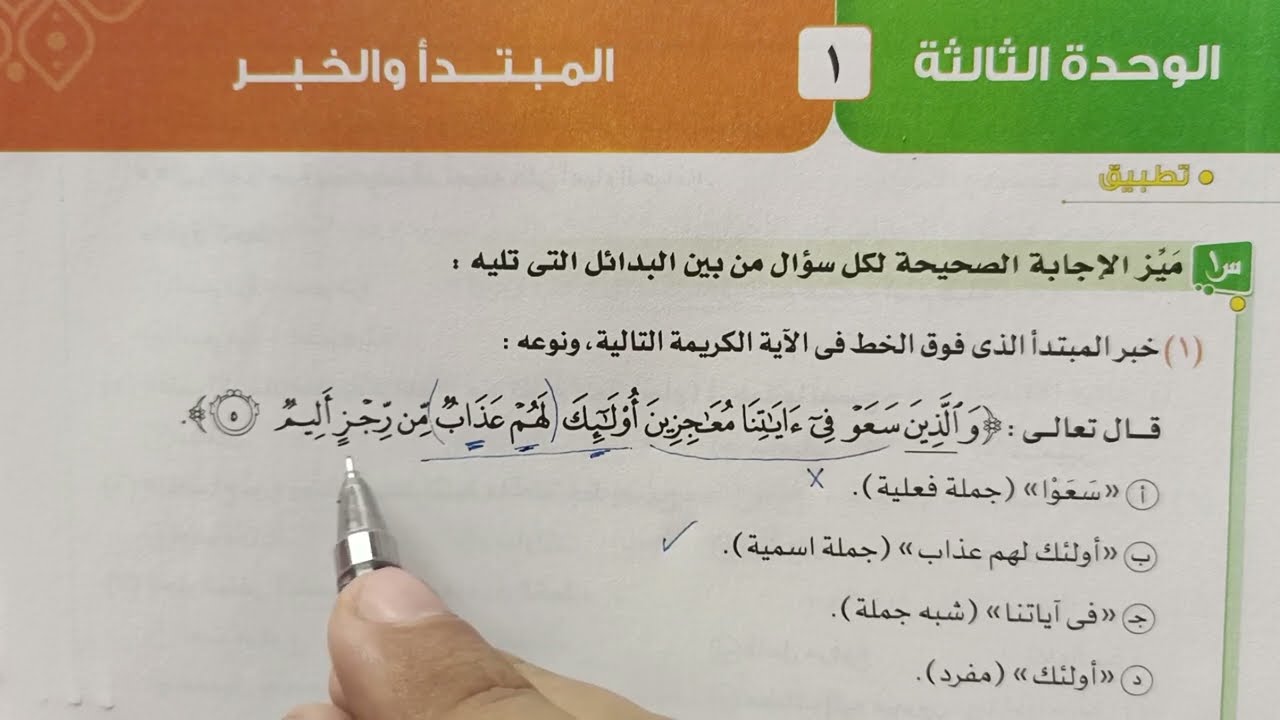 الوحدة الثالثة
١
المبتدأ والخبر
تطبيق
س١ مَيِّز الإجابة الصحيحة لكل سؤال من بين البدائل التى تليه :
(١) خبر المبتدأ الذى فوق الخط فى الآية الكريمة التالية، ونوعه :
قال تعالى : ﴿وَٱلَّذِينَ سَعَوۡ فِىٓ ءَايَٰتِنَا مُعَٰجِزِينَ أُوْلَٰٓئِكَ لَهُمۡ عَذَابٞ مِّن رِّجۡزٍ أَلِيمٞ ٥﴾.
أ «سَعَوْا» (جملة فعلية).
ب «أولئك لهم عذاب» (جملة اسمية).
جـ «فى آياتنا» (شبه جملة).
د «أولئك» (مفرد).